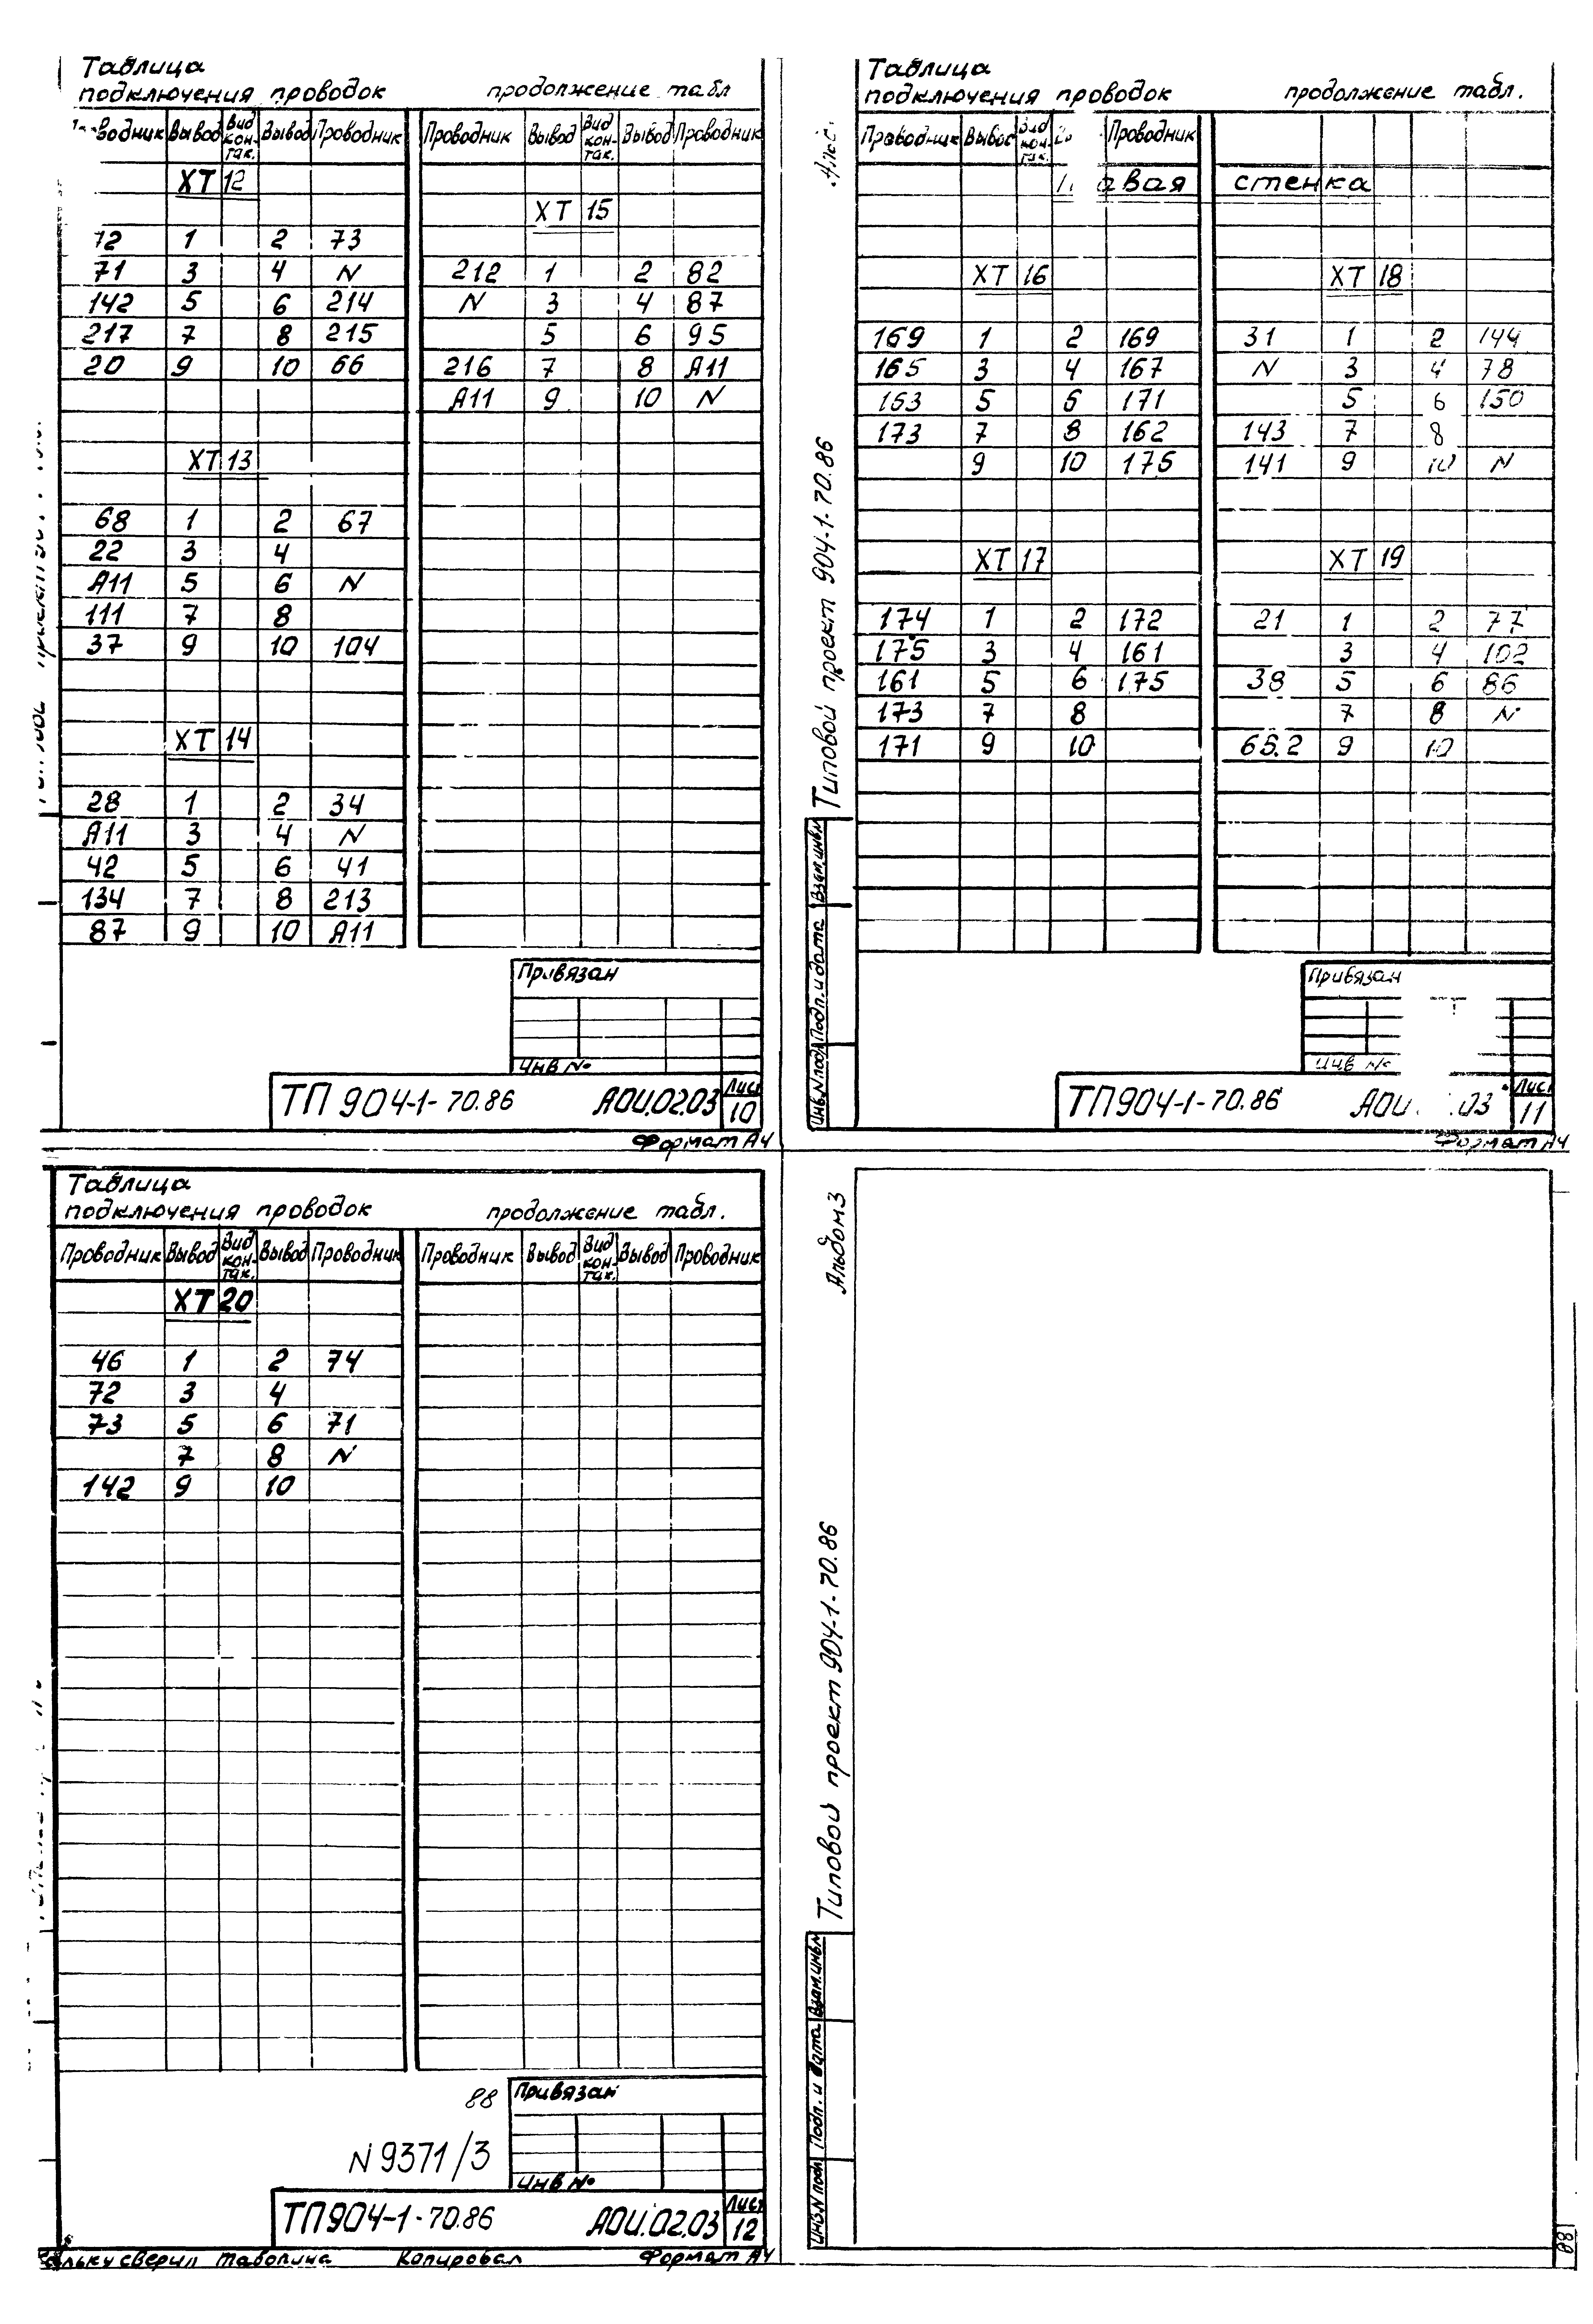 Таблица
подключения проводок продолжение табл
водник Вывод Вид кон-так. Вывод Проводник Проводник Вывод Вид кон-так. Вывод Проводник
ХТ 12
ХТ 15
72 1 2 73
71 3 4 N 212 1 2 82
142 5 6 214 N 3 4 87
217 7 8 215 5 6 95
20 9 10 66 216 7 8 А11
А11 9 10 N
ХТ 13
68 1 2 67
22 3 4
А11 5 6 N
111 7 8
37 9 10 104
ХТ 14
28 1 2 34
А11 3 4 N
42 5 6 41
134 7 8 213
87 9 10 А11
Привязан
Инв №
ТП 904-1-70.86 АОИ.02.03 Лист 10
Формат А4
Таблица
подключения проводок продолжение табл.
Проводник Вывод Вид кон-так. Проводник
авая стенка
ХТ 16 ХТ 18
169 1 2 169 31 1 2 144
165 3 4 167 N 3 4 78
163 5 6 171 5 6 150
173 7 8 162 143 7 8
9 10 175 141 9 10 N
ХТ 17 ХТ 19
174 1 2 172 21 1 2 77
175 3 4 161 3 4 102
161 5 6 175 38 5 6 86
173 7 8 7 8 N
171 9 10 65.2 9 10
Типовой проект 904-1-70.86
Инв.N подл. Подп. и дата Взам.инв.N
Привязан
Инв №
ТП904-1-70.86 АОИ. .03 Лист 11
Формат А4
Таблица
подключения проводок продолжение табл.
Проводник Вывод Вид кон-так. Вывод Проводник Проводник Вывод Вид кон-так. Вывод Проводник
ХТ 20
46 1 2 74
72 3 4
73 5 6 71
7 8 N
142 9 10
88
N 9371/3
Привязан
Инв №
ТП904-1-70.86 АОИ.02.03 Лист 12
альку сверил Копировал Формат А4
Альбом 3
Типовой проект 904-1-70.86
Инв.N подл. Подп. и дата Взам.инв.N
88